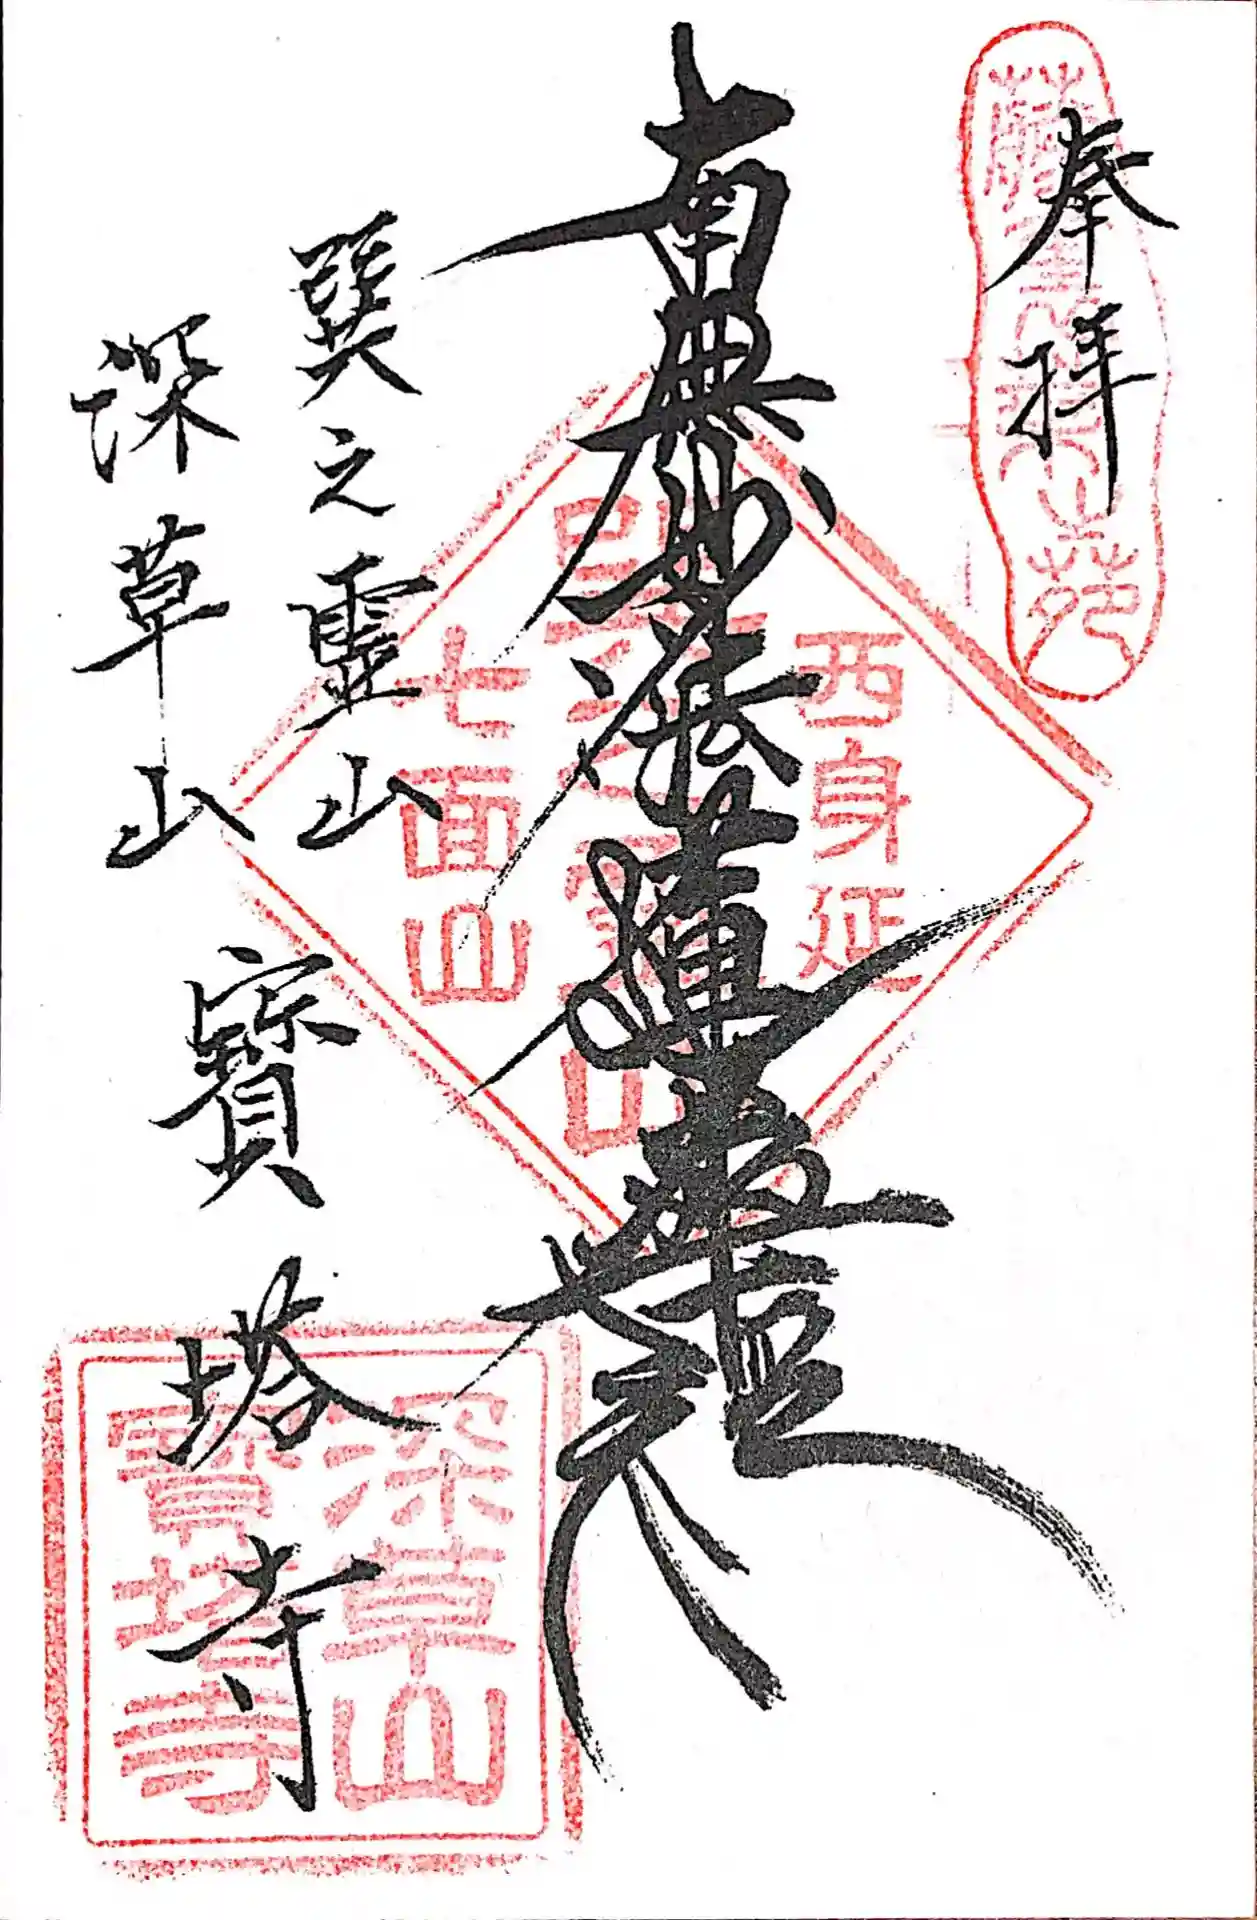 奉拝
南無妙法蓮華経
巽之靈山
深草山 寳塔寺
西身延
巽之靈山
七面山
深草山
寶塔寺